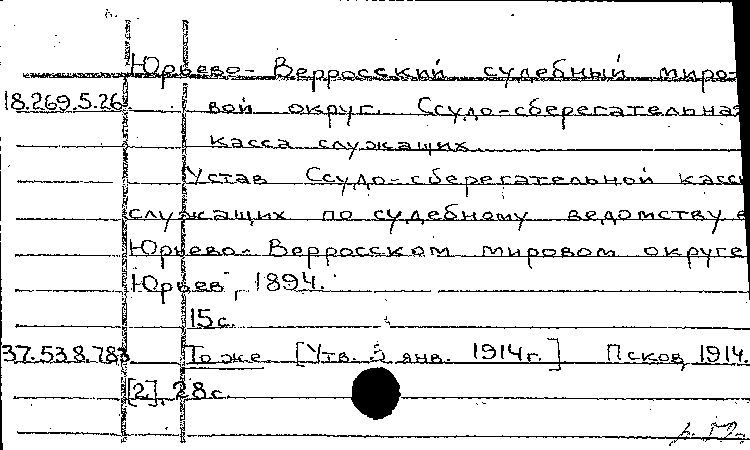 Юрьево-Верросский судебный миро-
18.269.5.26 вой округ. Ссудо-сберегательная
касса служащих.
Устав Ссудо-сберегательной кассы
служащих по судебному ведомству в
Юрьево-Верросском мировом округе
Юрьев, 1894.
15с.
37.538.783 То же [Утв. 3 янв. 1914г.]. Псков, 1914.
[2], 28с.